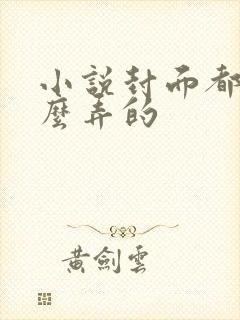 小說封而都
麼弄的
黃劍雲